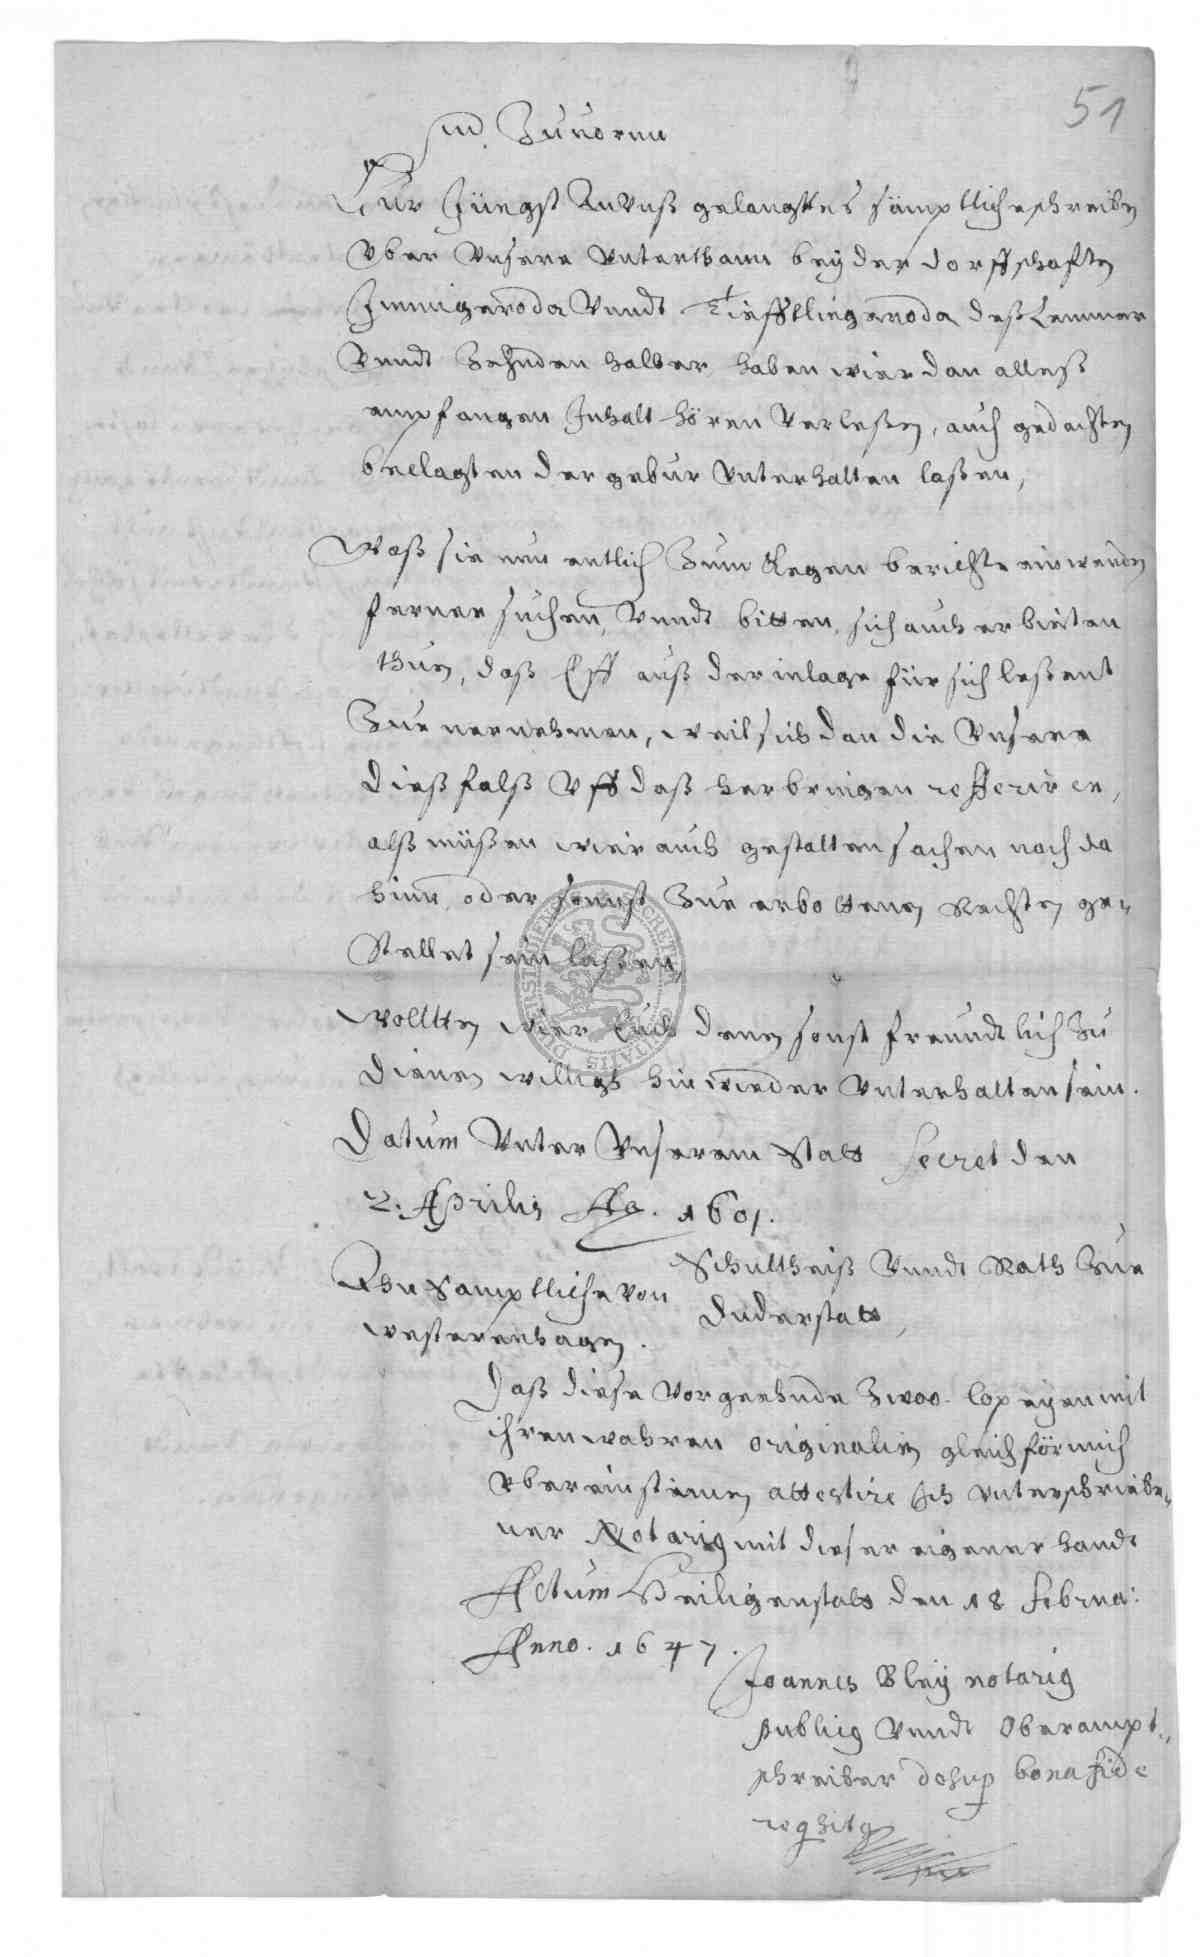 51
und Zuuornn
Eur Jüngst An Vnß gelangttes sämptliche schreiben
Vber Vnsere Vnterthann beyder dorffschafften
Immigeroda Vnndt Tiefftliengeroda deß Lemmer
Vnndt Zehnden halber haben wier dan alleß
empfangen Inhalt hören Verleßen, auch gedachten
beclagten der gebur Vnterhalten laßen,
Waß sie nun entlich Zum Kegen berichte einwenden
ferner suchen, Vnndt bitten, sich auch erbieten
thun, daß Eff auß der inlage für sich leßent
Zue vernehmen, weil sich dan die Vnsere
dießfalß Vff daß herbringen refferiren,
alß müßen wier auch gestalten sachen nach da
hinn, oder sonnst Zue erbottenen Rechten ge-
stellet sein laßen,
wolltten wier Euch denen sonst freundtlich Zu
dienen willigs hinwieder Vnterhalten sein.
Datum Vnter Vnserem Statt Secret den
2. Aprilis Ao. 1601.
Schultheiß Vnndt Rath Zue
Duderstatt,
Ahn Sämptliche Von
Westerenhagen.
Daß diese Vorgeehnde Zwoo Copeyen mit
ihren wahren originalien gleichförmich
Vbereinstimmen attestire Ich Vnterschriebe-
ner Notarius mit dieser eigener handt
Actum Heiligenstatt den 18 Februa:
Anno. 1647.
Joannes Bleÿ notarius
publicus Vnndt Oberampt-
schreiber desup bona fide
requisitus